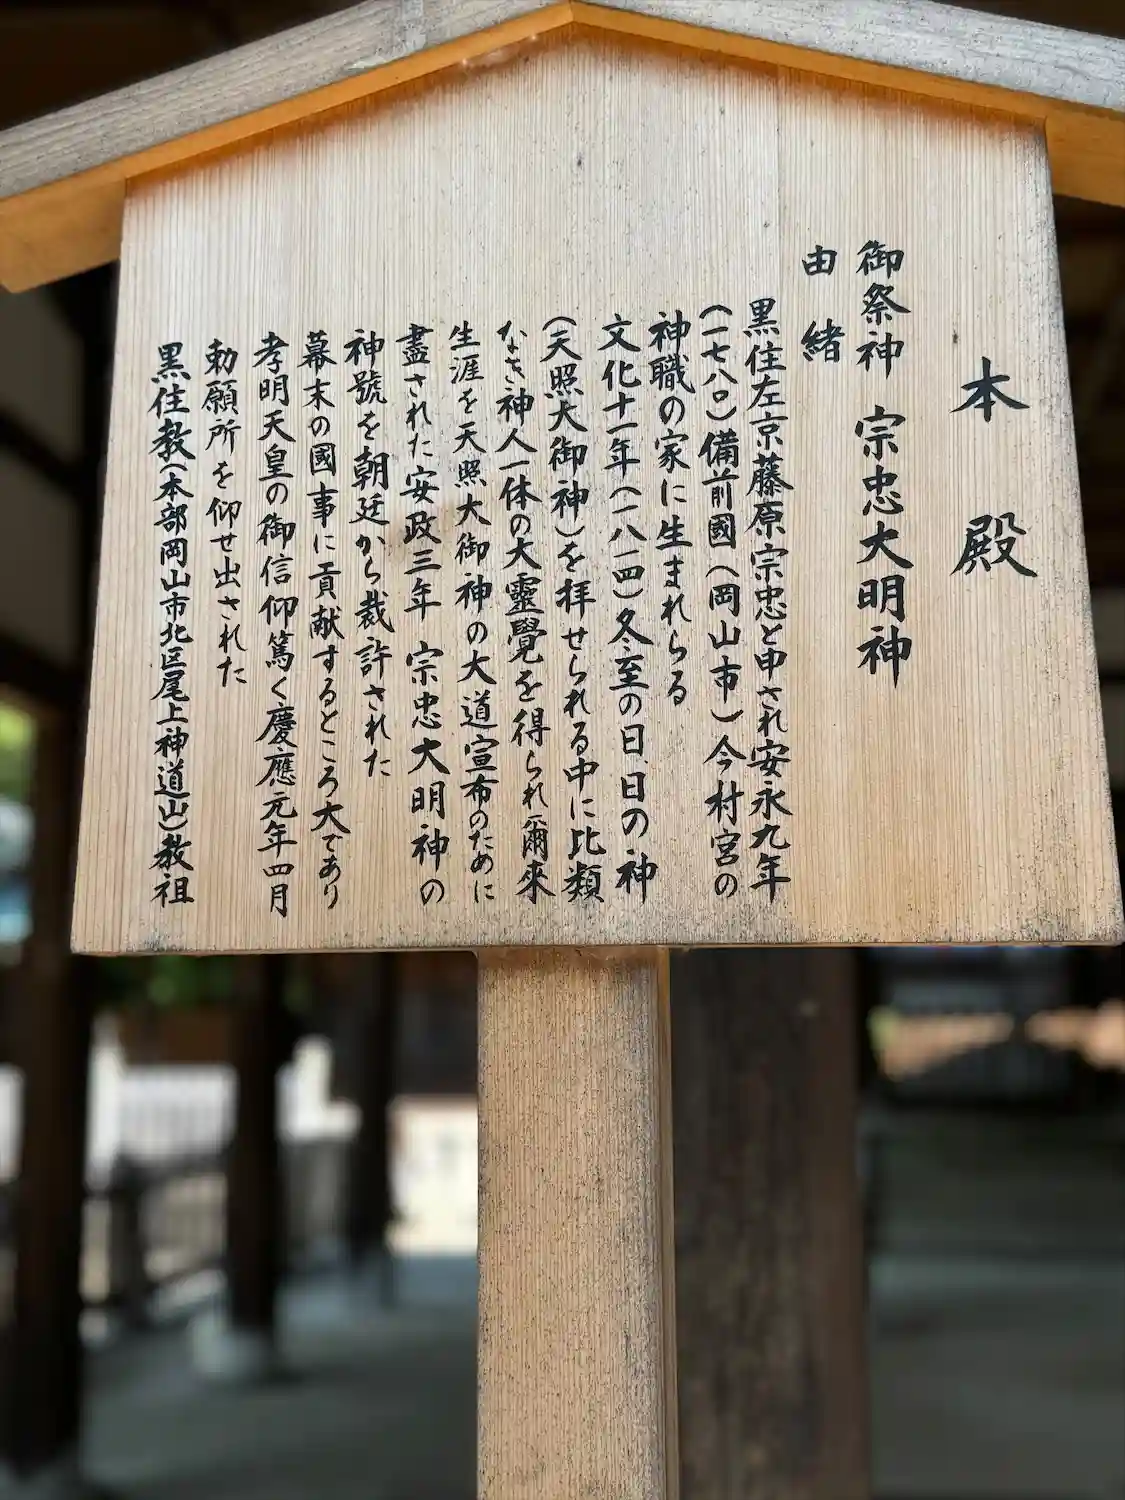 本殿
御祭神 宗忠大明神
由緒
黒住左京藤原宗忠と申され安永九年
(一七八〇)備前國(岡山市)今村宮の
神職の家に生まれらる
文化十一年(一八一四)冬至の日、日の神
(天照大御神)を拝せられる中に比類
なき神人一体の大靈覺を得られ爾來
生涯を天照大御神の大道宣布のために
盡された安政三年 宗忠大明神の
神號を朝廷から裁許された
幕末の國事に貢献するところ大であり
孝明天皇の御信仰篤く慶應元年四月
勅願所を仰せ出された
黒住教(本部岡山市北区尾上神道山)教祖